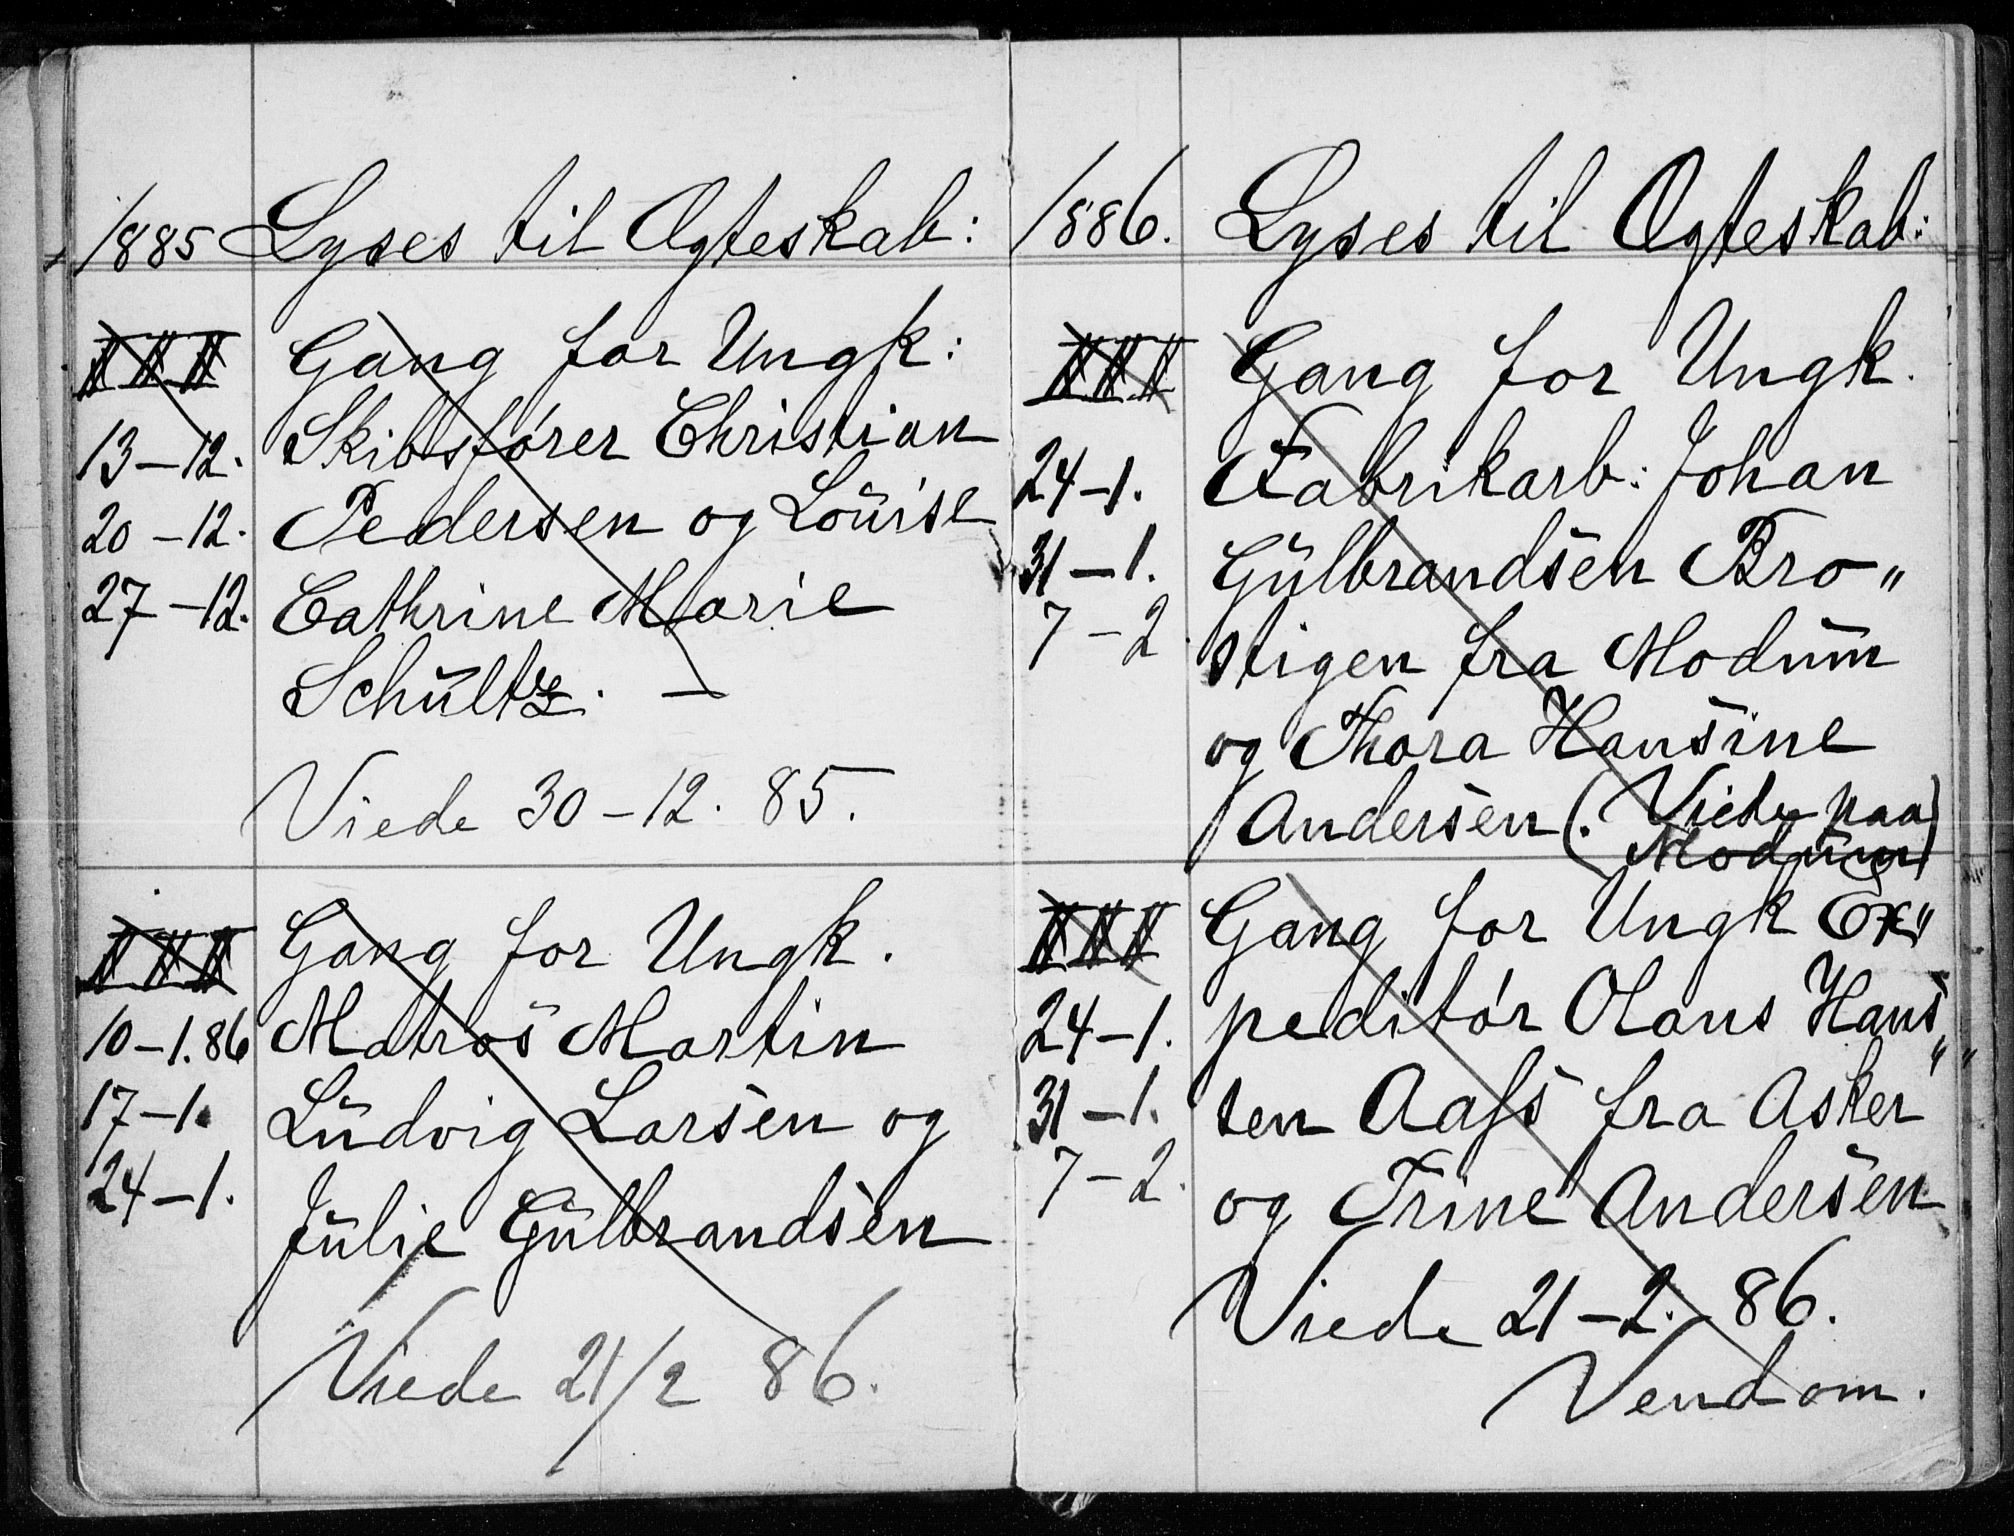 1885 Lyses til Ægteskab:
III Gang for Ungk:
13-12. Skibsfører Christian
20-12. Pedersen og Louise
27-12. Cathrine Marie
Schultz. —
Viede 30-12. 85.
III Gang for Ungk.
10-1.86 Matros Martin
17-1. Ludvig Larsen og
24-1. Julie Gulbrandsen
Viede 21/2 86.
1886. Lyses til Ægteskab:
III Gang for Ungk.
24-1. Fabrikarb: Johan
31-1. Gulbrandsen Bro„
7-2. stigen fra Modum
og Thora Hansine
Andersen (. Viede paa
Modum)
III Gang for Ungk Ex„
24-1. peditør Olaus Hans„
31-1. sen Aafs fra Asker
7-2. og Trine Andersen
Viede 21-2. 86.
Vend om.